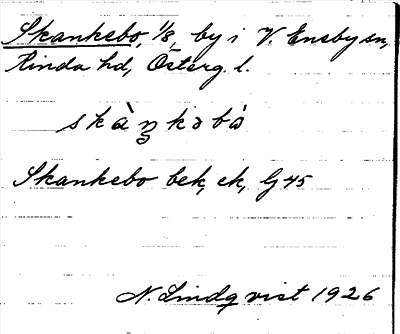 Skankebo, 1/8, by i V. Eneby sn,
Kinda hd, Österg. l.
skàŋkəbò
Skankebo bek, ek, G 45
N. Lindqvist 1926